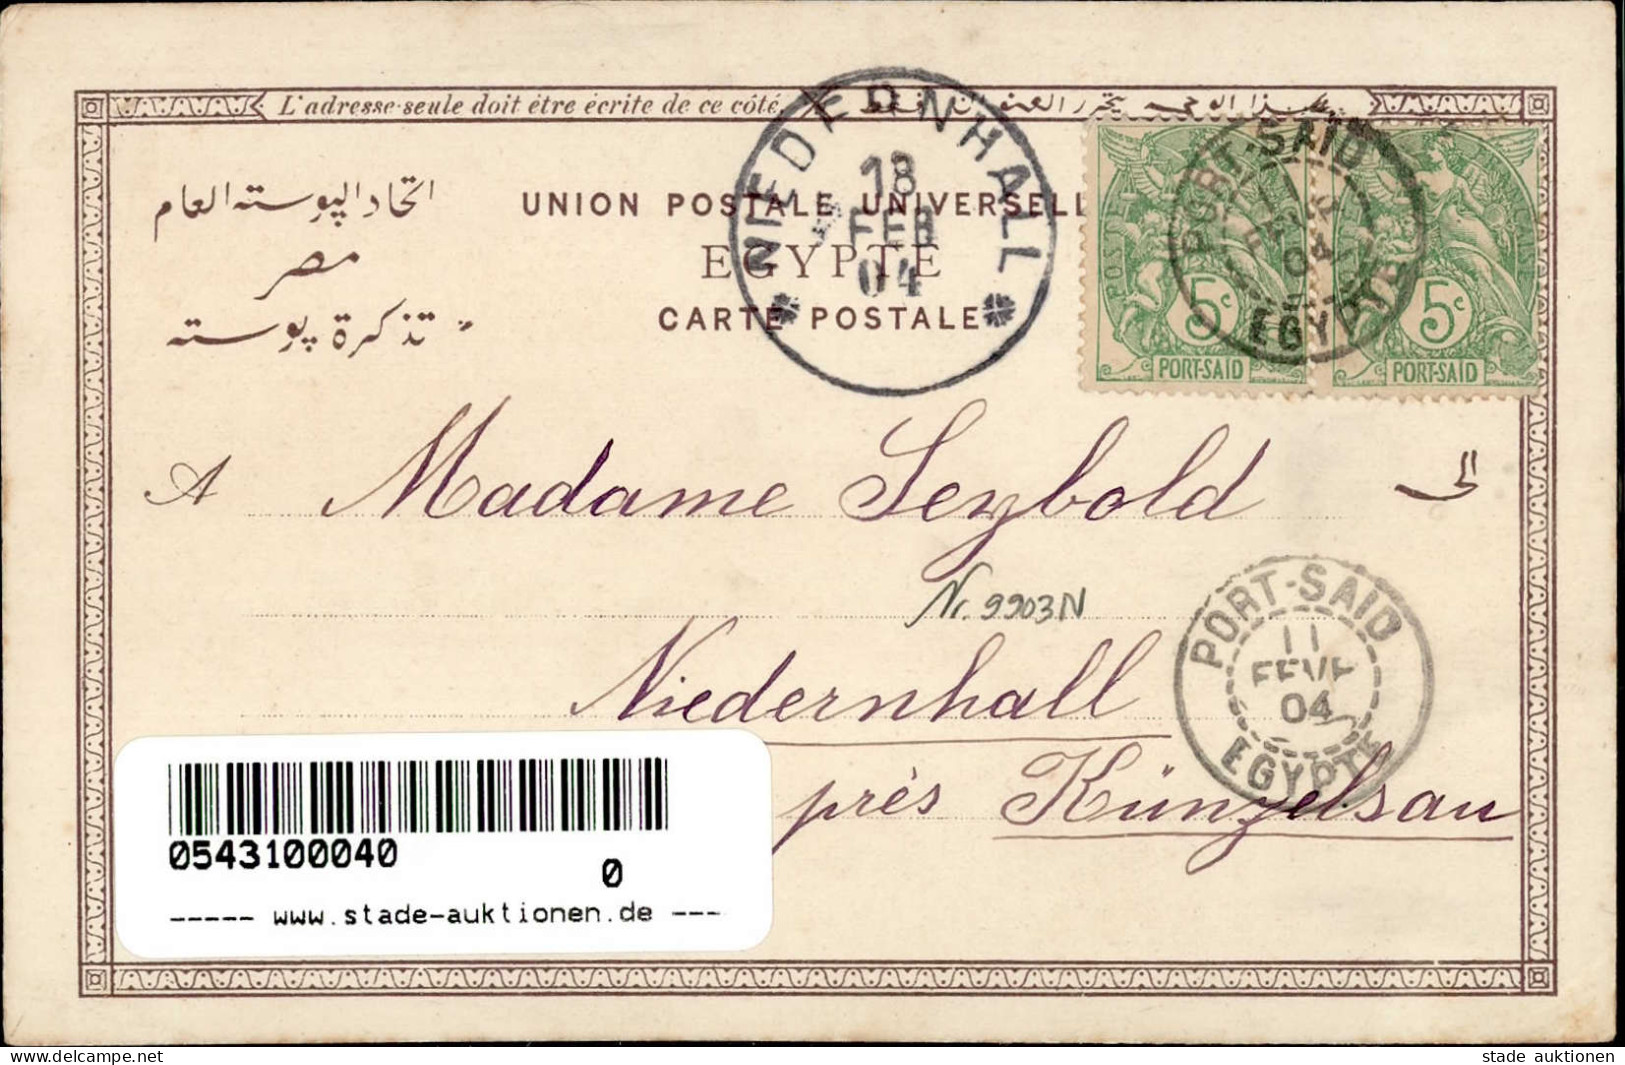 L'adresse seule doit être écrite de ce côté.
اتحاد البوسته العام
مصر
تذكرة بوسته
UNION POSTALE UNIVERSELL
EGYPTE
CARTE POSTALE
NIEDERNHALL
18
FEB
04
POSTES
5c
PORT-SAID
5c
PORT-SAID
PORT-SAID
FEVR
04
EGYPTE
A Madame Seybold
Nr. 9903N
Niedernhall
près Künzelsau
PORT-SAID
11
FEVR
04
EGYPTE
0543100040
0
----- www.stade-auktionen.de ---
www.delcampe.net
stade auktionen